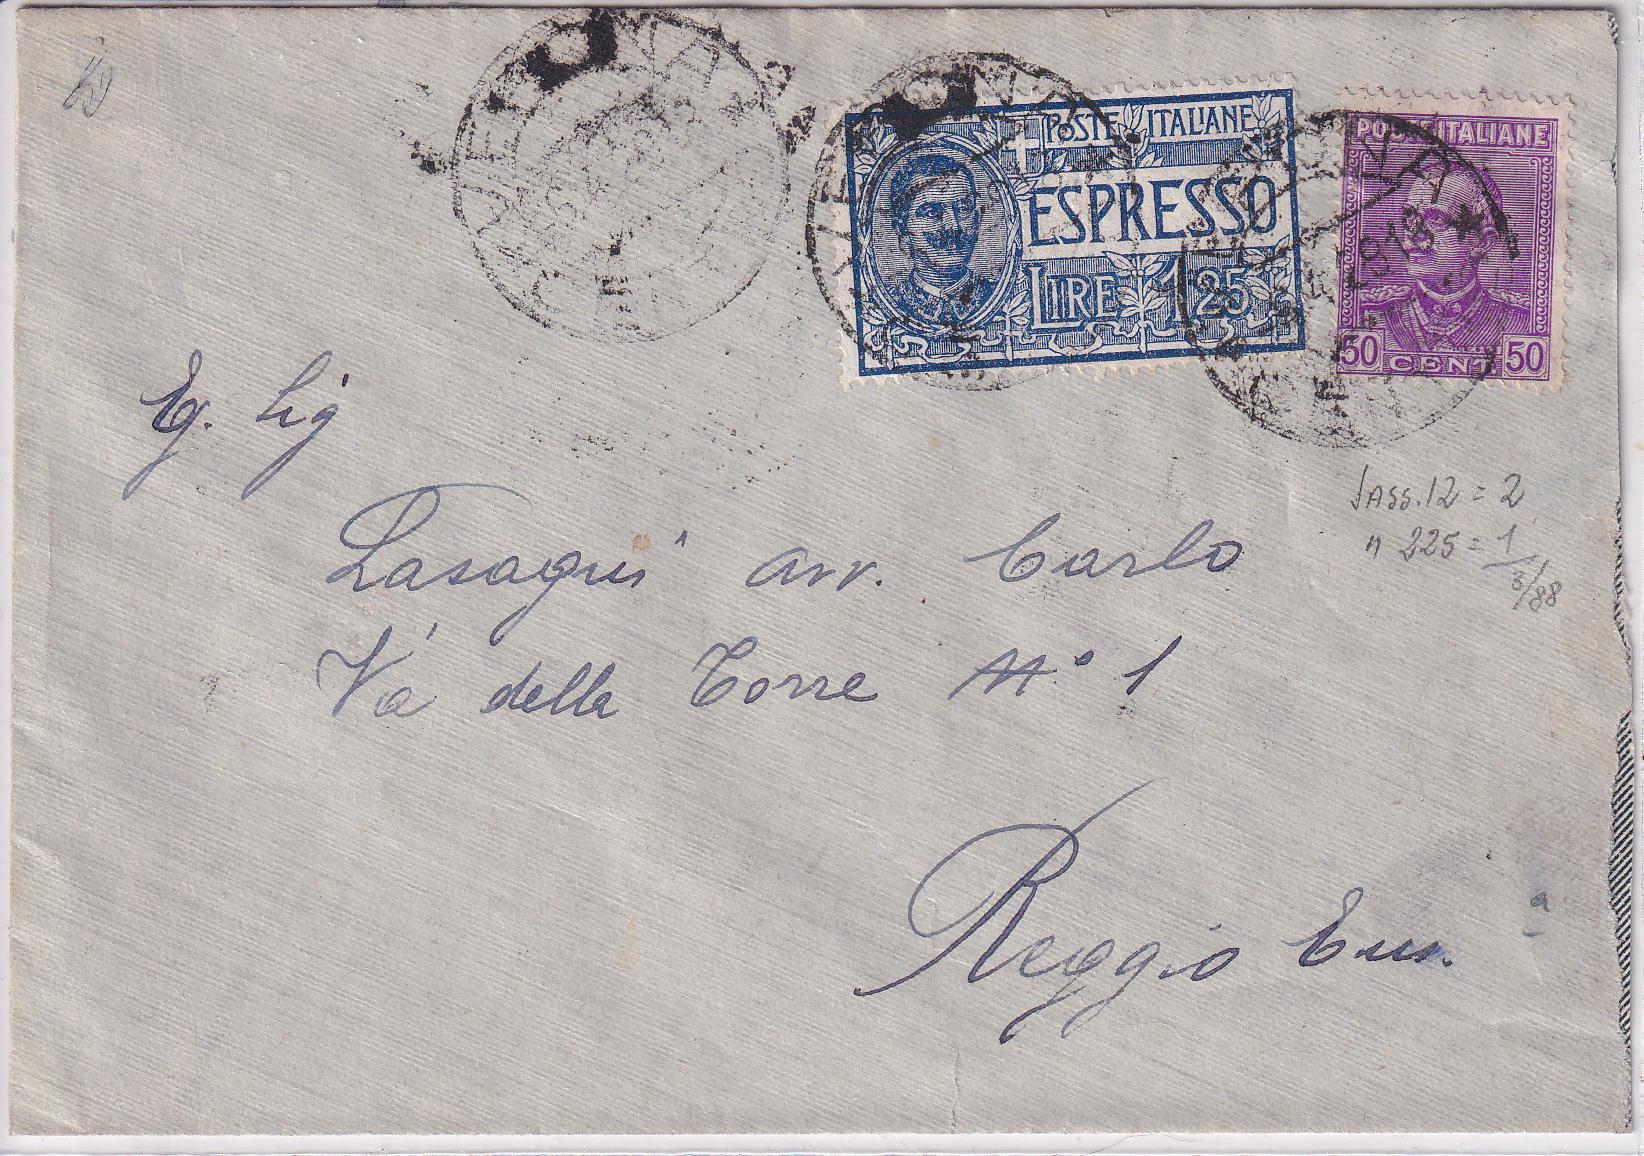 POSTE ITALIANE
ESPRESSO
LIRE 1,25
POSTE ITALIANE
50 CENT 50
Eg. Sig
Lasagni avv. Carlo
Via della Torre N° 1
Reggio Em.
a
Sass. 12 = 2
" 225 = 1
3/88